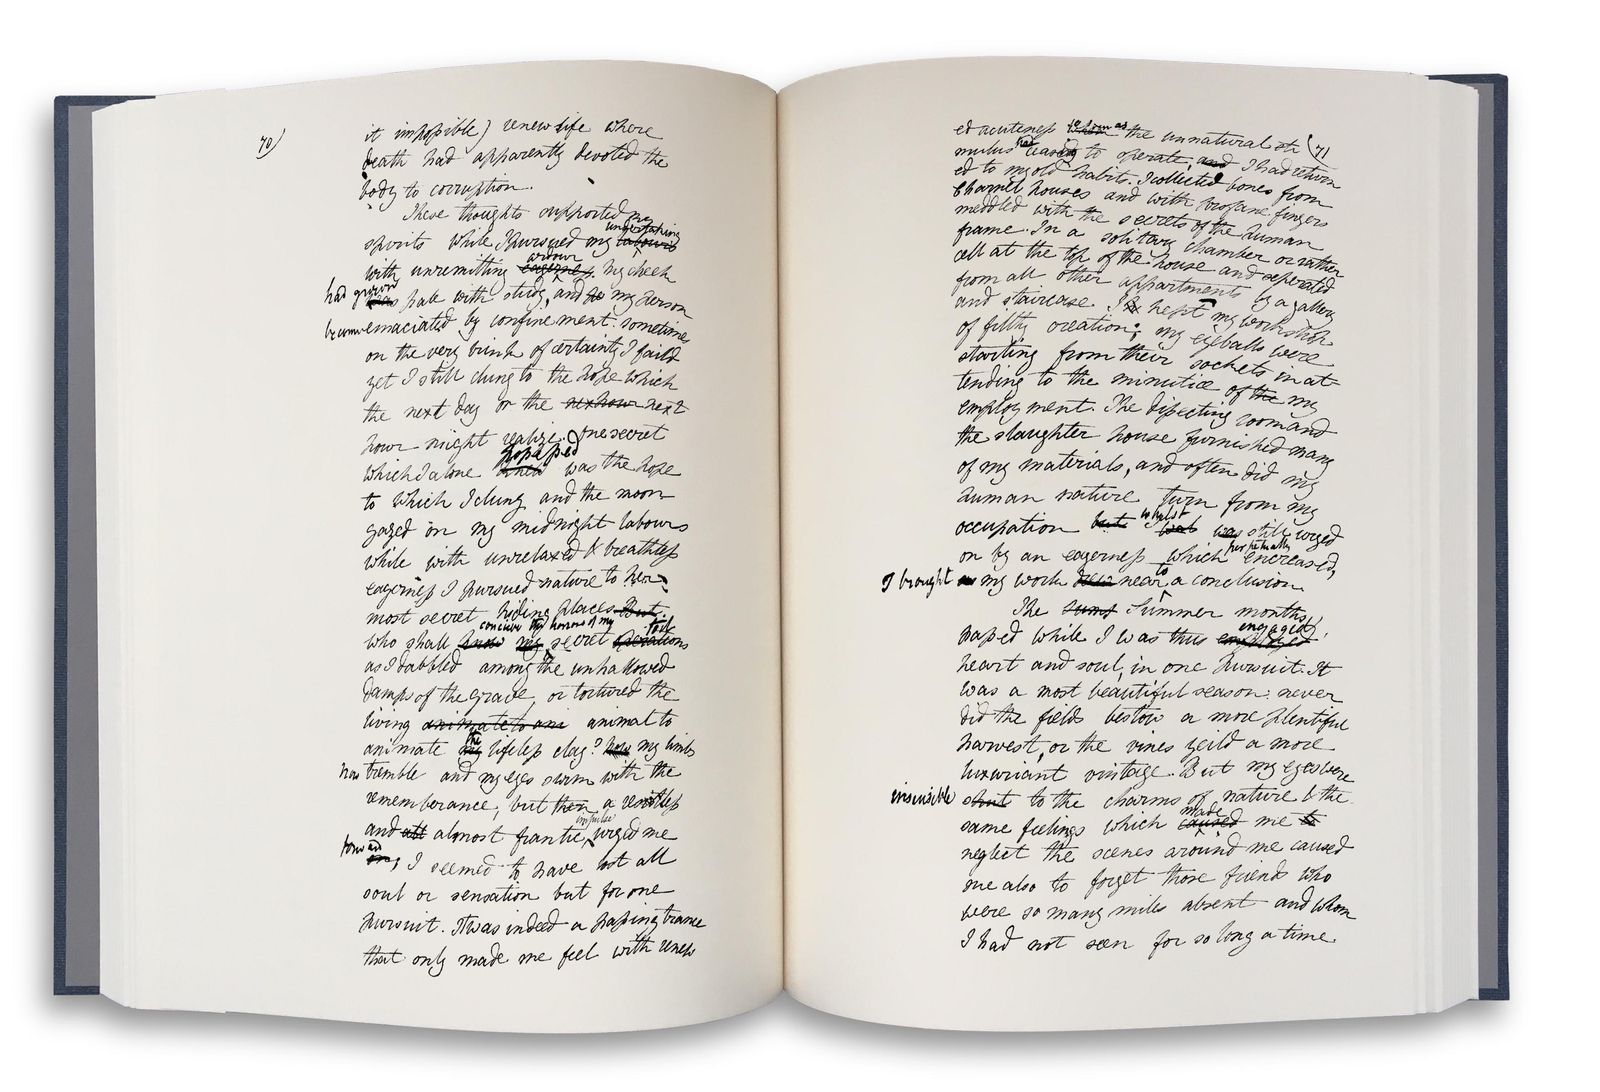 70)
it impossible) renew life where
death had apparently devoted the
body to corruption.
These thoughts supported my
undertaking
spirits while I pursued my labours
ardour
with unremitting eagerness. My cheek
had grown
was pale with study, and to my person
become emaciated by confinement. sometimes
on the very brink of certainty I faild
yet I still clung to the hope which
the next day or the next
hour might realize. One secret
possessed
which I alone knew was the hope
to which I clung and the moon
gazed on my midnight labours
while with unrelaxed & breathless
eagerness I pursued nature to her
most secret hiding places. But
conceive the horrors of my toil
who shall know my secret operations
as I dabbled among the unhallowed
damps of the grave or tortured the
living animate to ani animal to
the
animate my lifeless clay? how my limbs
now tremble and my eyes swim with the
rememberance; but then a restless
impulse
and all almost frantic, urged me
forward
on; I seemed to have lost all
soul or sensation but for one
pursuit. It was indeed a passing trance
that only made me feel with renew
(71
so soon as
ed acuteness when the unnatural sti
had
mulus ceasing to operate, and I had return
ed to my old habits. I collected bones from
charnel houses and with profane fingers
meddled with the secrets of the human
frame. In a solitary chamber or rather
cell at the top of the house and seperated
from all other appartments by a gallery
and staircase. I kept my workshop
of filthy creation; my eyeballs were
starting from their sockets in at
tending to the minutiæ of the my
employment. The dissecting room and
the slaughter house furnished many
of my materials, and often did my
human nature turn from my
whilst
occupation but was still urged
perpetually
on by an eagerness which encreased,
I brought my work near to a conclusion.
The sums Summer months
engaged,
passed while I was thus employed
heart and soul, in one pursuit. It
was a most beautiful season. never
did the fields bestow a more plentiful
harvest, or the vines yeild a more
luxuriant vintage. But my eyes were
insensible shut to the charms of nature & the
made
same feelings which caused me to
neglect the scenes around me caused
me also to forget those friends who
were so many miles absent and whom
I had not seen for so long a time.